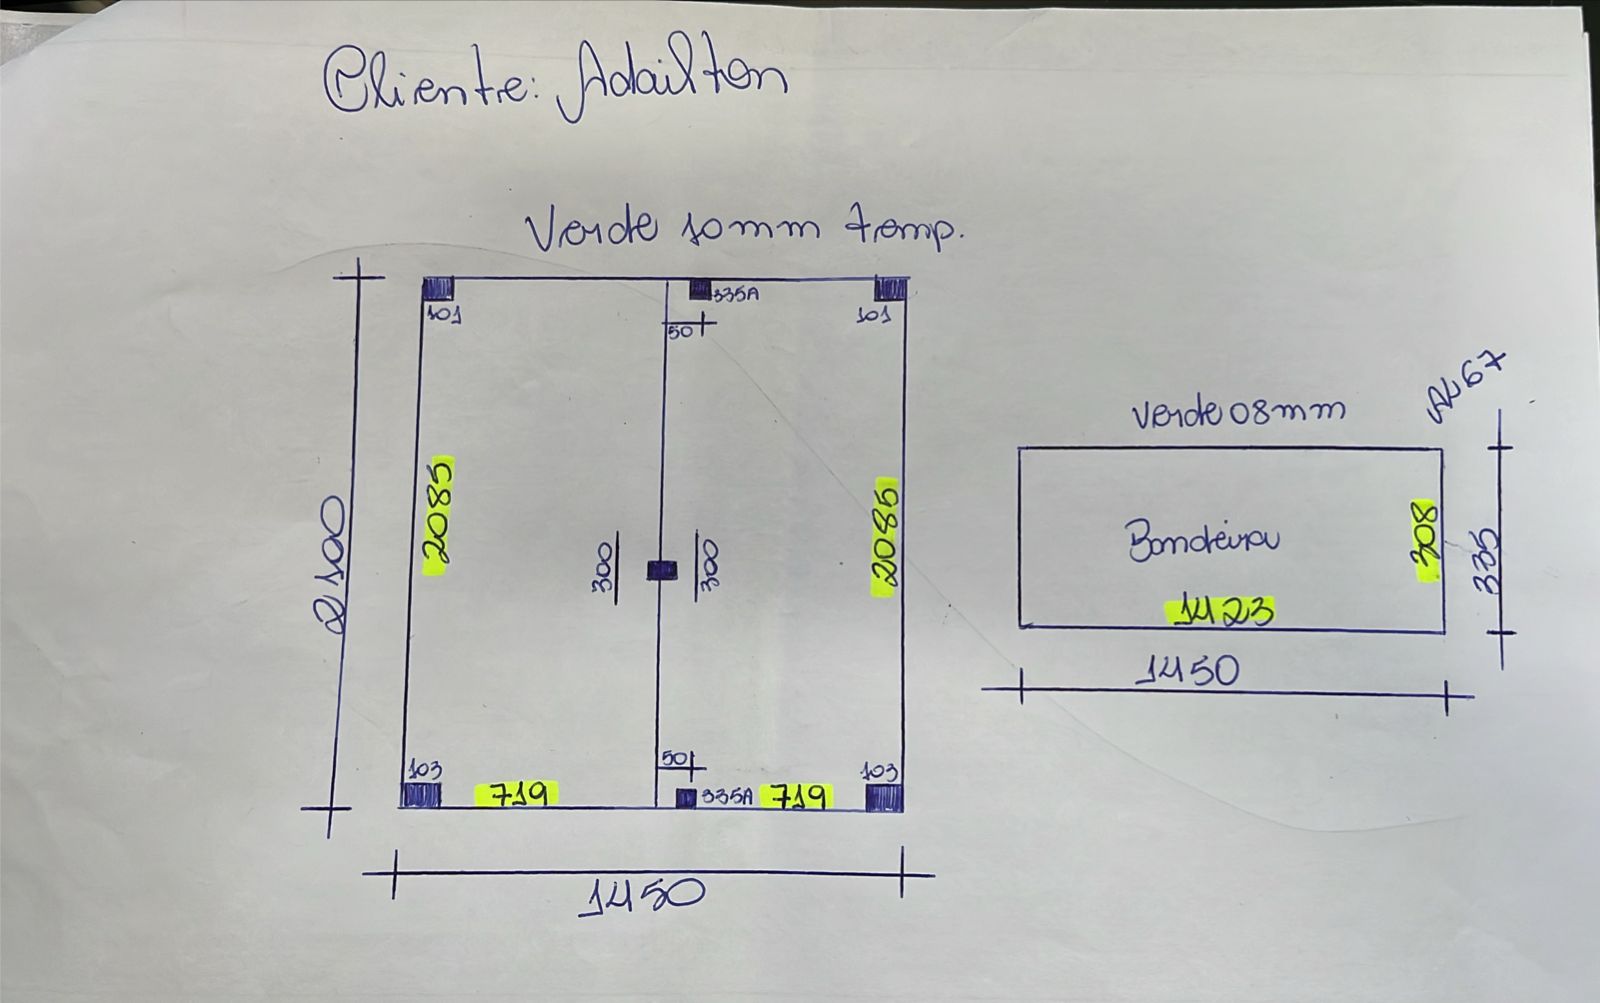 Cliente: Adailton
Verde 10mm temp.
335A
101
101
50
2100
2085
2085
300
300
50
103
103
719
335A
719
1450
AL 67
Verde 08mm
Bandeira
308
335
1423
1450